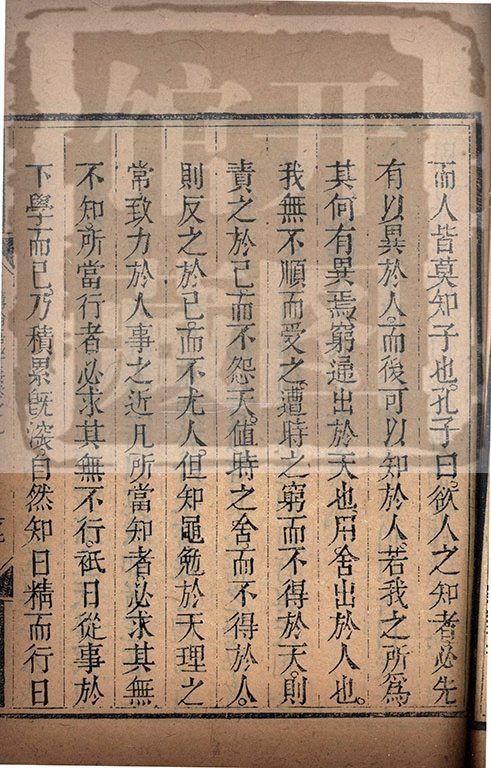 而人皆莫知子也孔子曰欲人之知者必先
有以異於人而後可以知於人若我之所為
其何有異焉窮通出於天也用舍出於人也
我無不順而受之遭時之窮而不得於天則
責之於己而不怨天值時之舍而不得於人
則反之於己而不尤人但知黽勉於天理之
常致力於人事之近凡所當知者必求其無
不知所當行者必求其無不行祇日從事於
下學而已乃積累既深自然知日精而行日